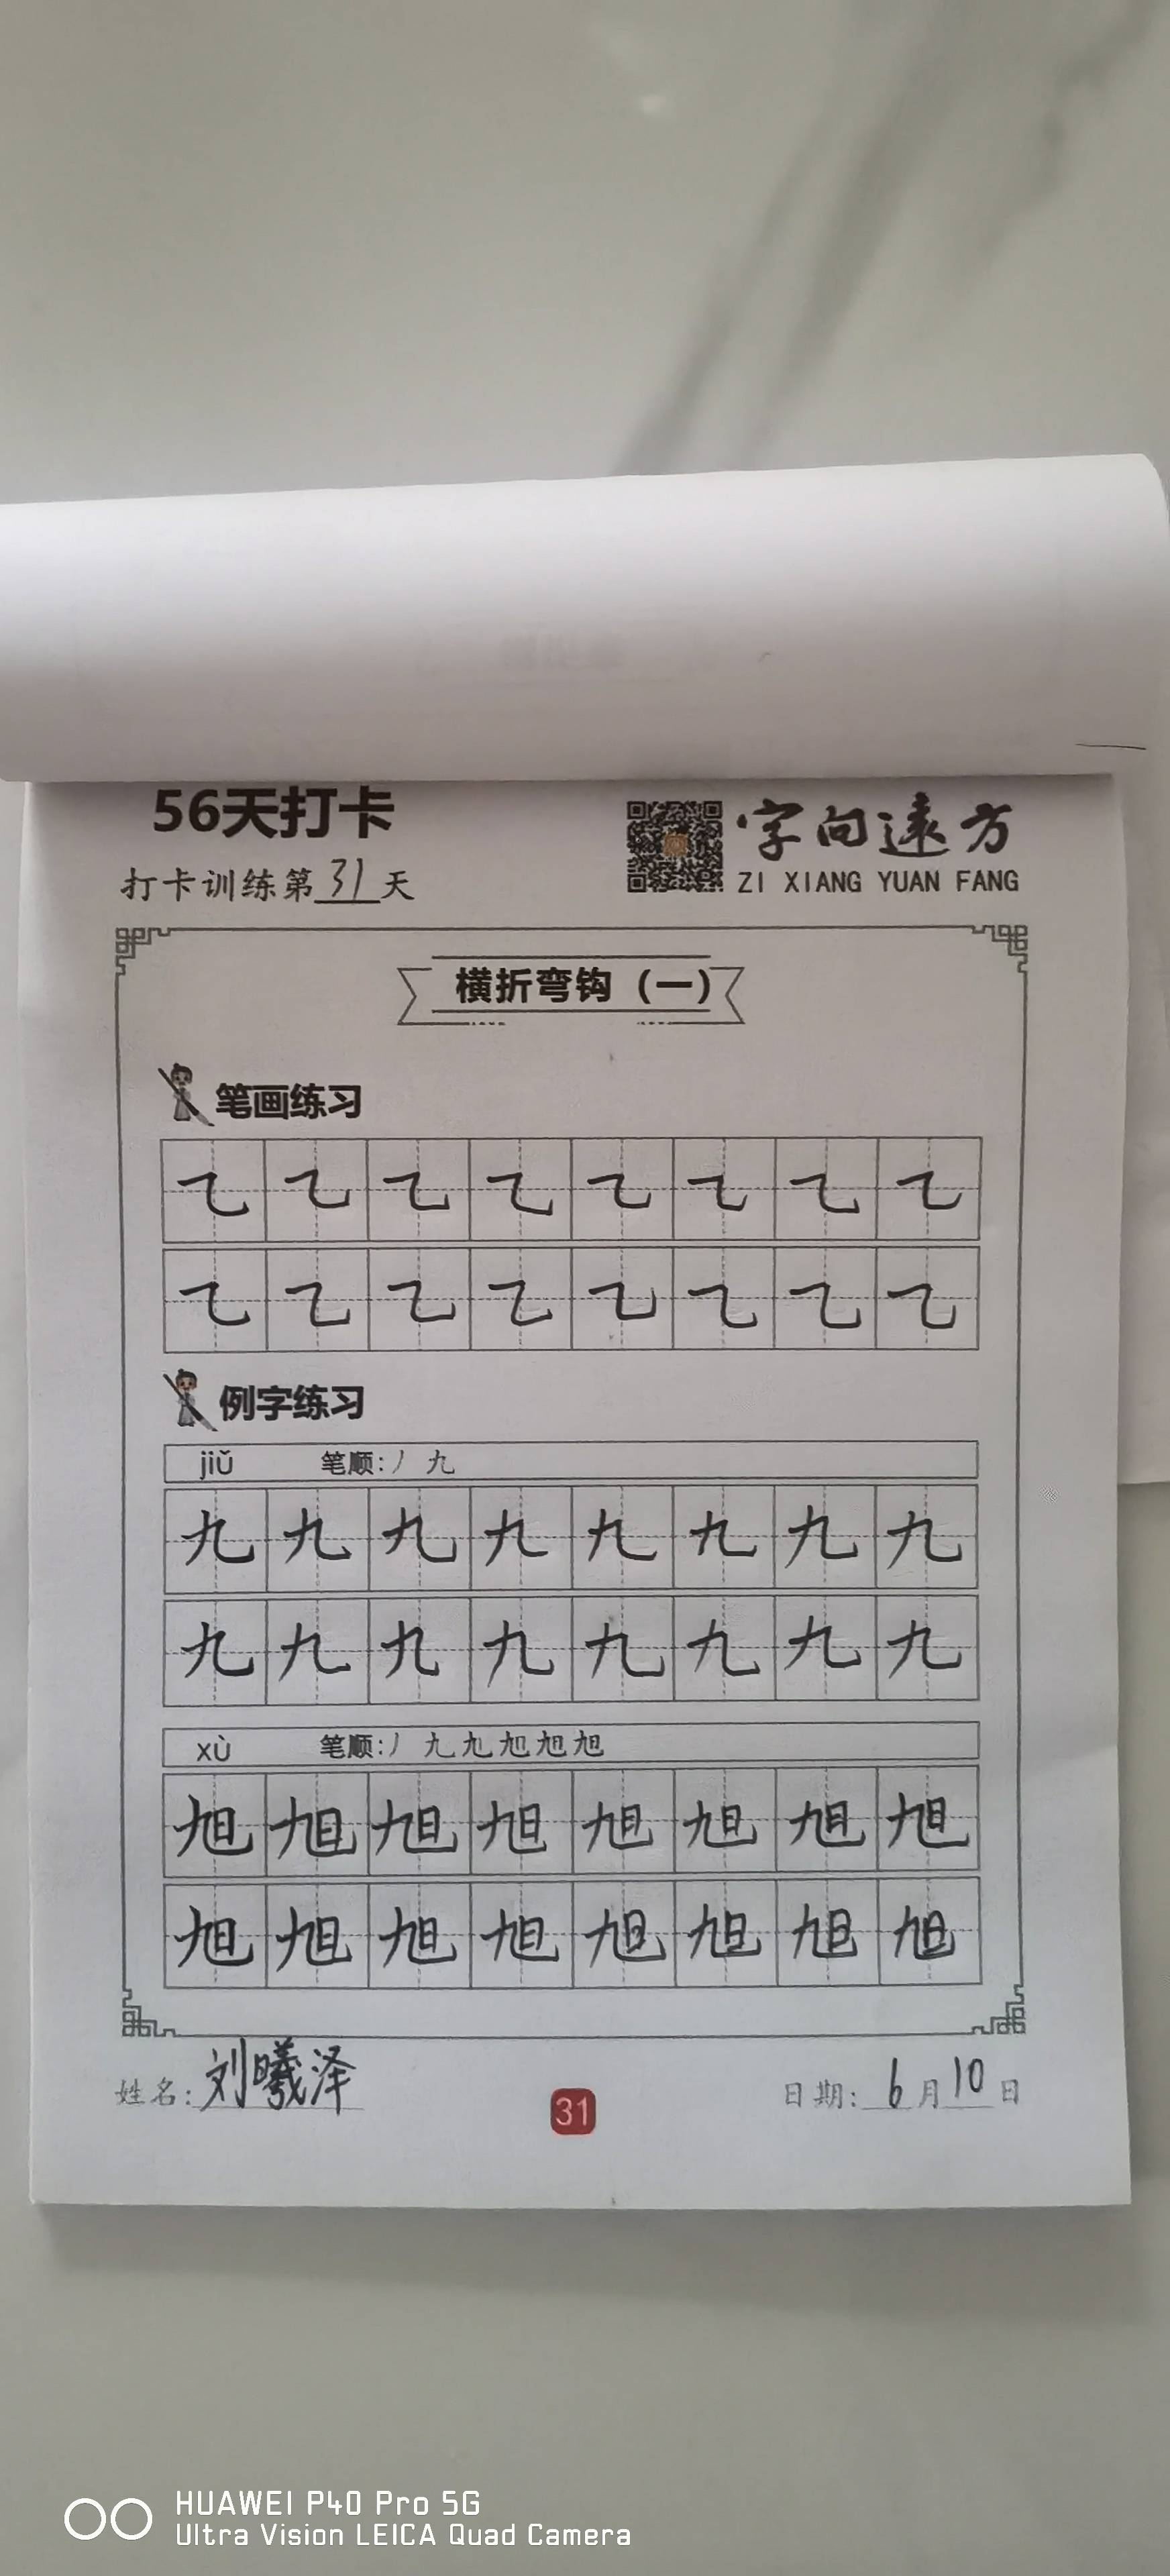 56天打卡
字向远方
打卡训练第31天
ZI XIANG YUAN FANG
横折弯钩（一）
笔画练习
㇈ ㇈ ㇈ ㇈ ㇈ ㇈ ㇈ ㇈
㇈ ㇈ ㇈ ㇈ ㇈ ㇈ ㇈ ㇈
例字练习
jiǔ 笔顺:丿 九
九 九 九 九 九 九 九 九
九 九 九 九 九 九 九 九
xù 笔顺:丿 九 九 旭 旭 旭
旭 旭 旭 旭 旭 旭 旭 旭
旭 旭 旭 旭 旭 旭 旭 旭
姓名:刘曦泽
31
日期:6月10日
HUAWEI P40 Pro 5G
Ultra Vision LEICA Quad Camera